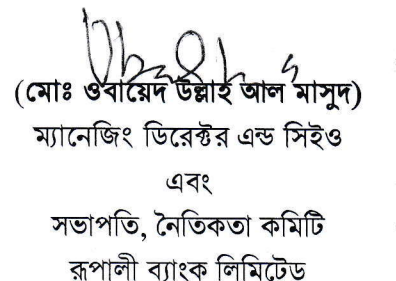 (মোঃ ওবায়েদ উল্লাহ আল মাসুদ)
ম্যানেজিং ডিরেক্টর এন্ড সিইও
এবং
সভাপতি, নৈতিকতা কমিটি
রূপালী ব্যাংক লিমিটেড